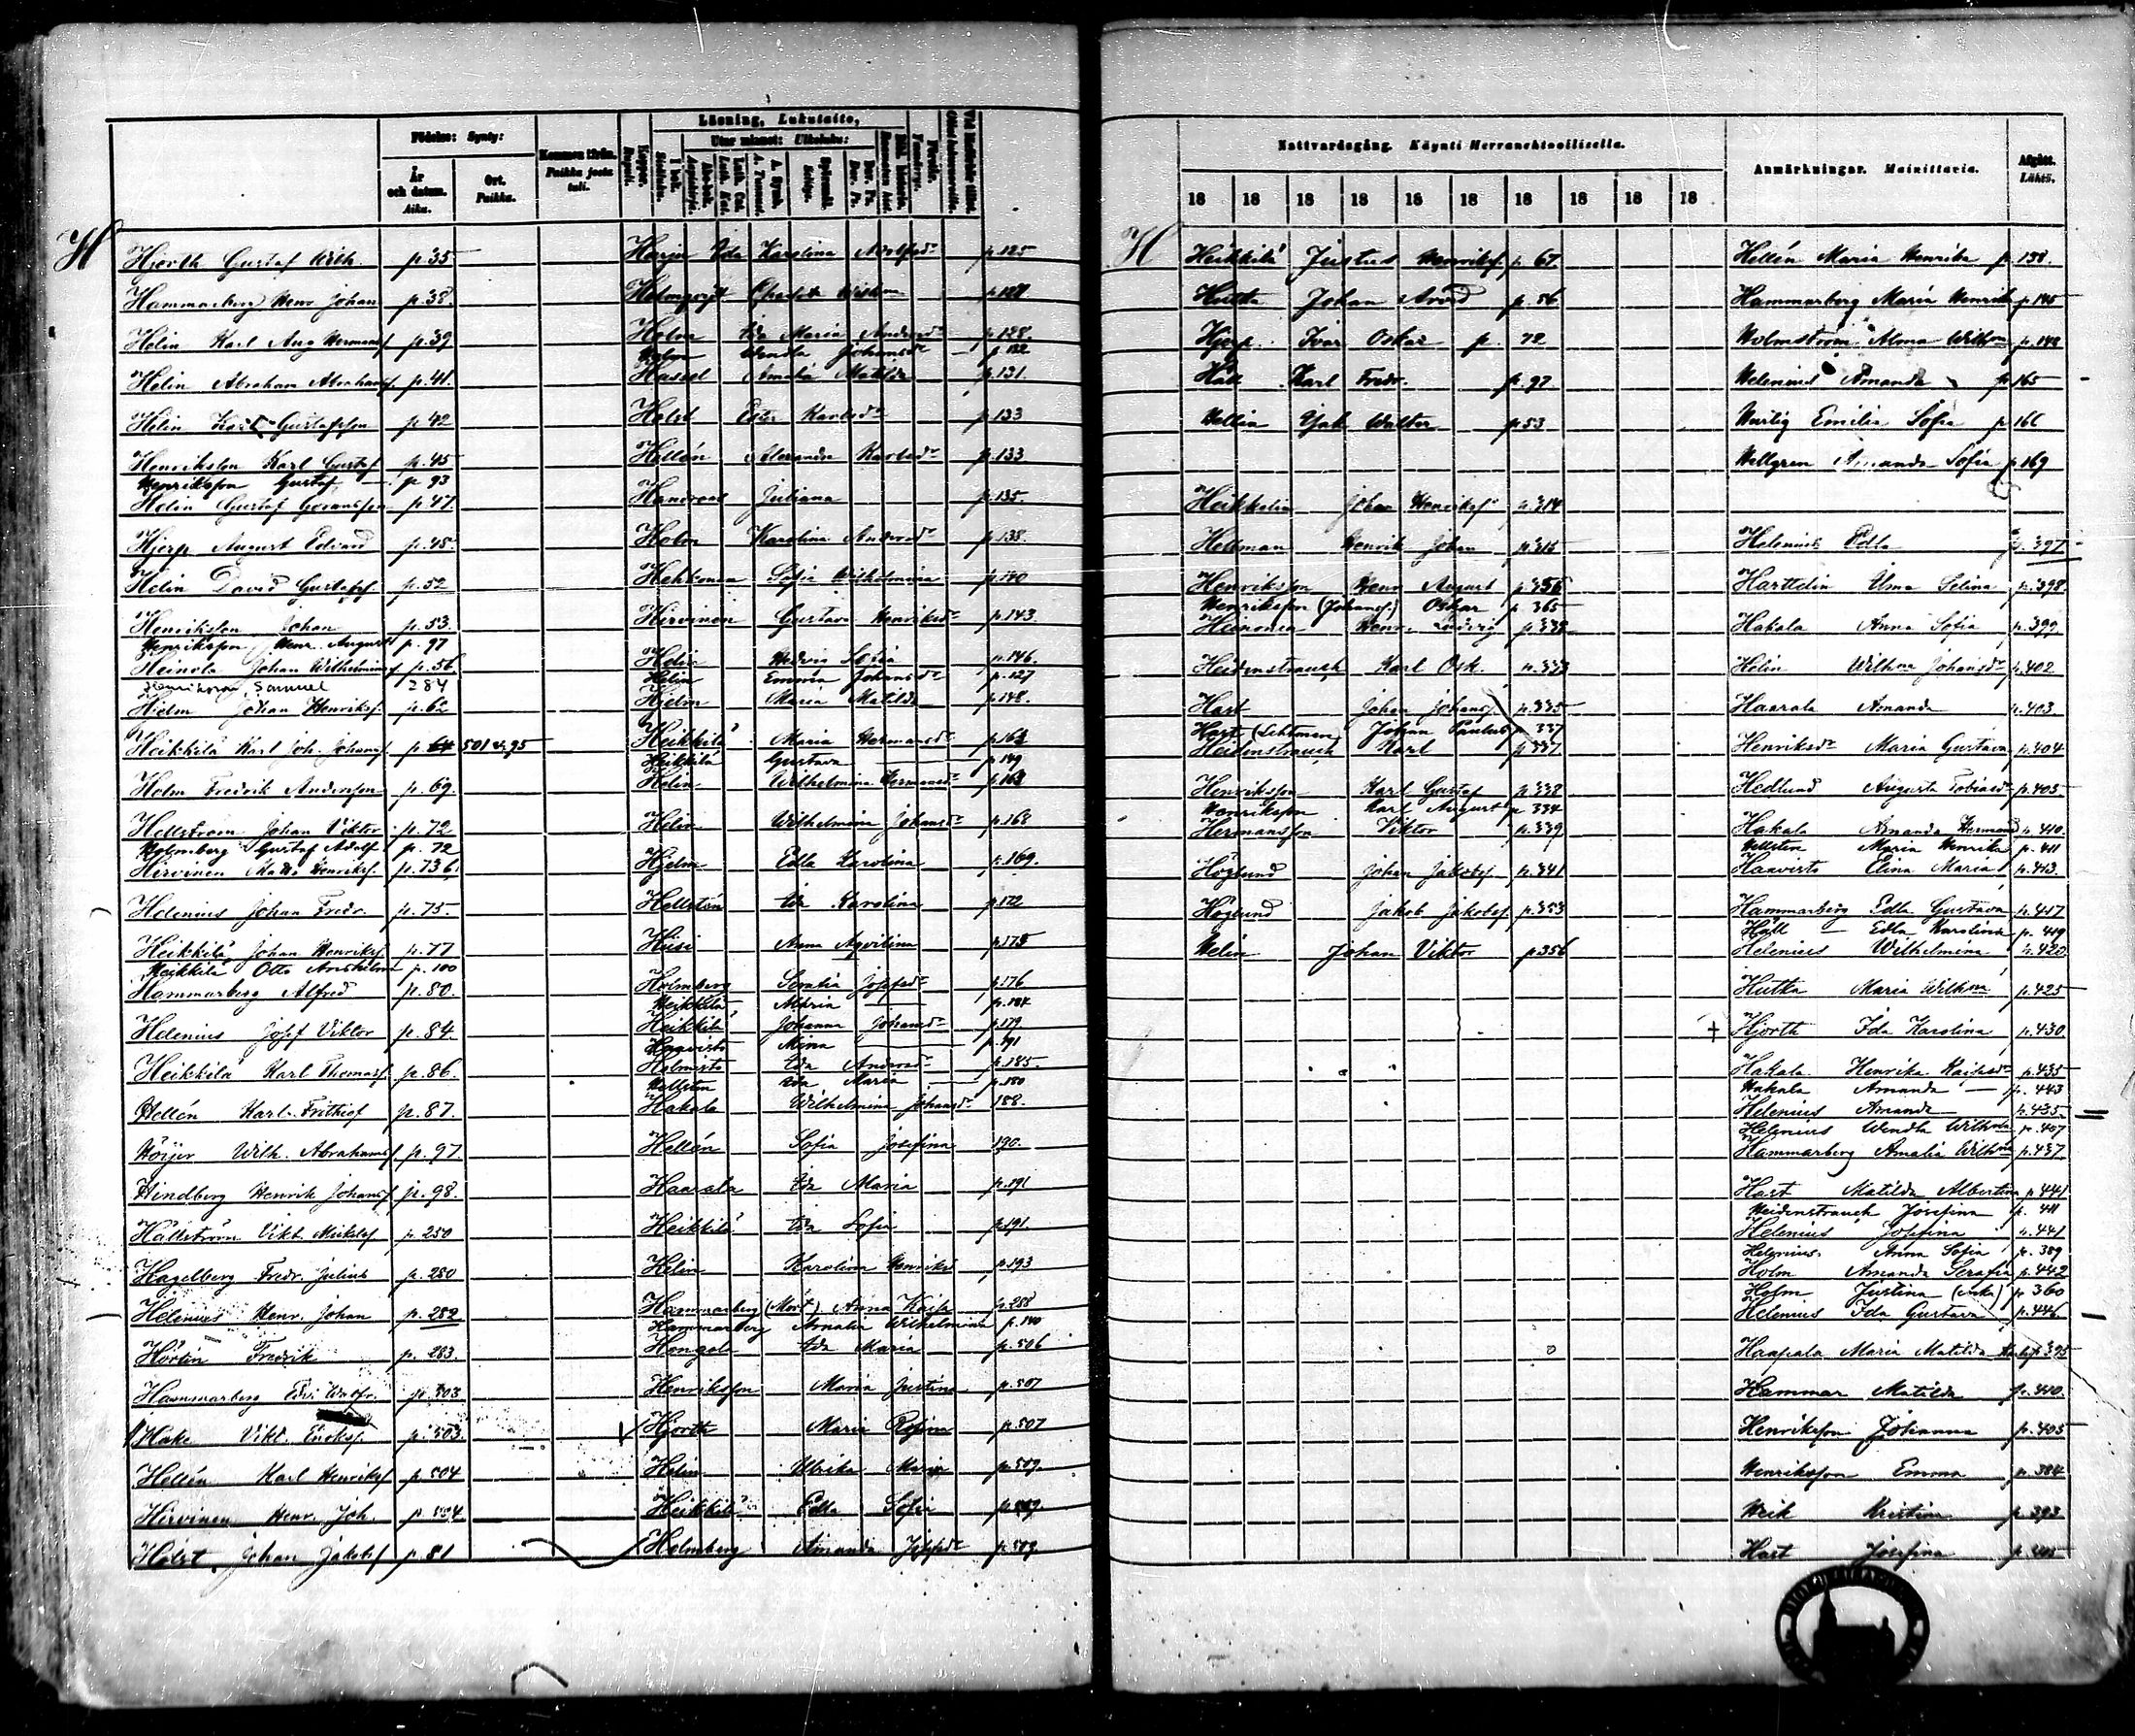 Födelse: Synty:
År och datum. Aika.
Ort. Paikka.
Kommen ifrån. Paikka josta tuli.
Läsning, Lukutaito,
Utur minnet: Ulkoluku:
H
Hjorth Gustaf Wilh. p. 35
Hammarberg Henr Johan p. 38.
Helin Karl Aug Hermansf p. 39
Helin Abraham Abrahamsf. p. 41.
Helin Karl Gustafsson p. 42
Henriksson Karl Gustaf p. 45
Henriksson Gustaf — p. 93
Helin Gustaf Göransson p. 47.
Hjerp August Edvard p. 48.
Helin David Gustafsf. p. 52
Henriksson Johan p. 53.
Henriksson Henr. August p. 97
Heinola Johan Wilhelminasf p. 56.
Henriksson, Samuel 284
Hjelm Johan Henriksf. p. 62
Heikkilä Karl Joh. Johansf p. 64 501 v. 95
Holm Fredrik Andersson p. 69.
Hellström Johan Viktor p. 72
Holmberg Gustaf Adolf p. 72
Hirvinen Matts Henriksf. p. 736.
Helenius Johan Fredr. p. 75.
Heikkilä Johan Henriksf p. 77
Heikkilä Otto Anshelm p. 100
Hammarberg Alfred p. 80.
Helenius Josef Viktor p. 84.
Heikkilä Karl Thomasf p. 86.
Hellén Karl Frithiof p. 87.
Höijer Wilh. Abrahamsf p. 97.
Hindberg Henrik Johansf p. 98.
Hällström Vikt. Mickelsf p. 250
Hagelberg Fredr. Julius p. 280
Helenius Henr. Johan p. 282
Hörlin Fredrik p. 283.
Hammarberg Edv. Walfr. p. 503
Hake Vikt. Eriksf. p. 503.
Hellén Karl Henriksf p. 504
Hirvinen Henr. Joh. p. 504
Holst Johan Jakobsf p. 81
Harju Ida Karolina Adolfsdr p. 125
Holmqvist Charlott Wilhma
Holm Ida Maria Andersdr p. 128.
Holm Wendla Johansdr — p. 132
Hassel Amalia Matilda p. 131.
Holst Ester Karlsdr p. 133
Hellén Alexandra Karlsdr p. 133
Handroos Juliana p. 135.
Holm Karolina Andersdr p. 138.
Hehkonen Sofia Wilhelmina p. 140
Hirvinen Gustava Henriksdr p. 143.
Helin Hedvig Sofia p. 146.
Helin Emma Johansdr p. 127
Hjelm Maria Matilda p. 148.
Heikkilä Maria Hermansdr p. 162
Heikkilä Gustava — p. 149
Helin Wilhelmina Hermansdr p. 163
Helin Wilhelmina Johansdr p. 168
Hjelm Edla Karolina p. 169.
Hellstén Ida Karolina p. 172
Hiisi Anna Aqvilina p. 175
Holmberg Serafia Josefsdr p. 176
Heikkilä Maria — p. 184
Heikkilä Johanna Johansdr p. 179
Haavisto Mina — p. 191
Holmisto Ida Andersdr p. 185.
Hellsten Ida Maria — p. 180
Hakala Wilhelmina Johansdr 188.
Hellén Sofia Josefina 190.
Haarala Ida Maria p. 191
Heikkilä Ida Sofia p. 191.
Helin Karolina Henriksd p. 193
Hammarberg (Mört) Anna Kaisa p. 288
Hammarberg Amalia Wilhelmina p. 140
Hongola Ida Maria p. 506
Henriksson Maria Justina p. 507
Hjorth Maria Rosina p. 507
Helin Ulrika Maria p. 509.
Heikkilä Edla Sofia p. 509.
Holmberg Amanda Josefsdr p. 509
Nattvardsgång. Käynti Herranehtoollisella.
Anmärkningar. Mainittavia.
Afgått. Lähtö.
18 18 18 18 18 18 18 18 18 18
H
Heikkilä Justus Henriksf p. 67
Hutka Johan Arvid p. 56
Hjerp Ivar Oskar p. 72
Häll Karl Fredr. p. 97
Hellin Jak Walter p 53
Heikkilä Johan Henriksf p. 314
Hellman Henrik Johan p. 315
Henriksson Henr August p. 356
Henriksson (Johansf.) Oskar p. 365
Heinonen Henr. Ludvig p. 338
Heidenstrauch Karl Osk. p. 333
Hart Johan Johansf p. 335
Hart (Lehtonen) Johan Paulus p. 337
Heidenstrauch Karl p. 337
Henriksson Karl Gustaf p. 338
Henriksson Karl August p. 334
Hermansson Viktor p. 339
Höglund Johan Jakobsf p. 341
Höglund Jakob Jakobsf p. 353
Helin Johan Viktor p 356
Hellén Maria Henrika p 138.
Hammarberg Maria Henrika p. 145
Holmström Alma Wilhma p. 148
Helenius Amanda p 165
Hurtig Emilia Sofia p 166
Hellgren Amanda Sofia p. 169
Helenius Edla p. 397
Harttelin Alma Selina p. 398.
Hakala Anna Sofia p. 399.
Helin Wilhma Johansdr p. 402
Haarala Amanda p. 403.
Henriksdr Maria Gustava p. 404
Hedlund Augusta Tobiasdr p. 405
Hakala Amanda Hermansd p. 410.
Hellsten Maria Henrika p. 411
Haavisto Elina Maria p. 413.
Hammarberg Edla Gustava p. 417
Häll — Edla Karolina p. 419
Helenius Wilhelmina p. 420
Hutka Maria Wilhma p. 425
+ Hjorth Ida Karolina p. 430
Hakala Henrika Kajsdr p. 435
Hakala Amanda — p. 443
Helenius Amanda — p. 435
Helenius Wendla Wilhma p. 407
Hammarberg Amalia Wilhma p. 437
Hart Matilda Albertina p 441
Heidenstrauch Josefina p. 411
Helenius Josefina p. 441
Helenius Anna Sofia p. 389
Holm Amanda Serafia p. 442
Holm Justina (enka) p 360
Helenius Ida Gustava p. 446.
Haapala Maria Matilda p 395
Hammar Matilda p. 440.
Henriksson Johanna p. 405
Henriksson Emma p. 384
Heik Kristina p. 393
Hart Josefina